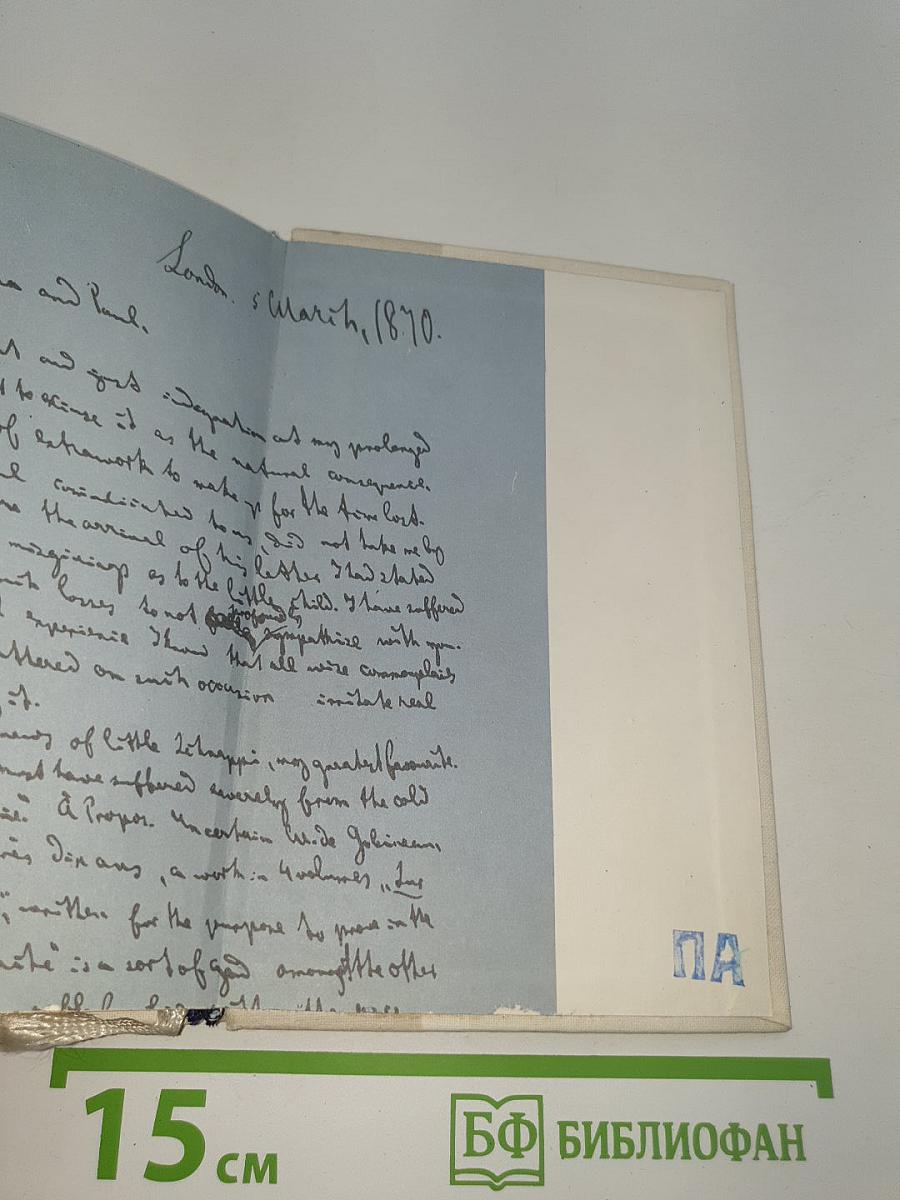 London. 5 March, 1870.
and Paul.
and just indignation at my prolonged
to excuse it as the natural consequence.
of extrawork to make up for the time lost.
communicated to us, did not take me by
the arrival of his letter I had stated
misgivings as to the little child. I have suffered
such losses to not profoundly sympathise with you.
experience I know that all wise commonplaces
uttered on such occasion irritate real
it.
of little Schnappi, my greatest favourite.
must have suffered severely from the cold
À Propos. Uncertain Mr. de Gobineau,
dix ans, a work in 4 volumes „Sur
written for the purpose to prove in the
is a sort of God amongst the other
ПА
15 см
БФ БИБЛИОФАН